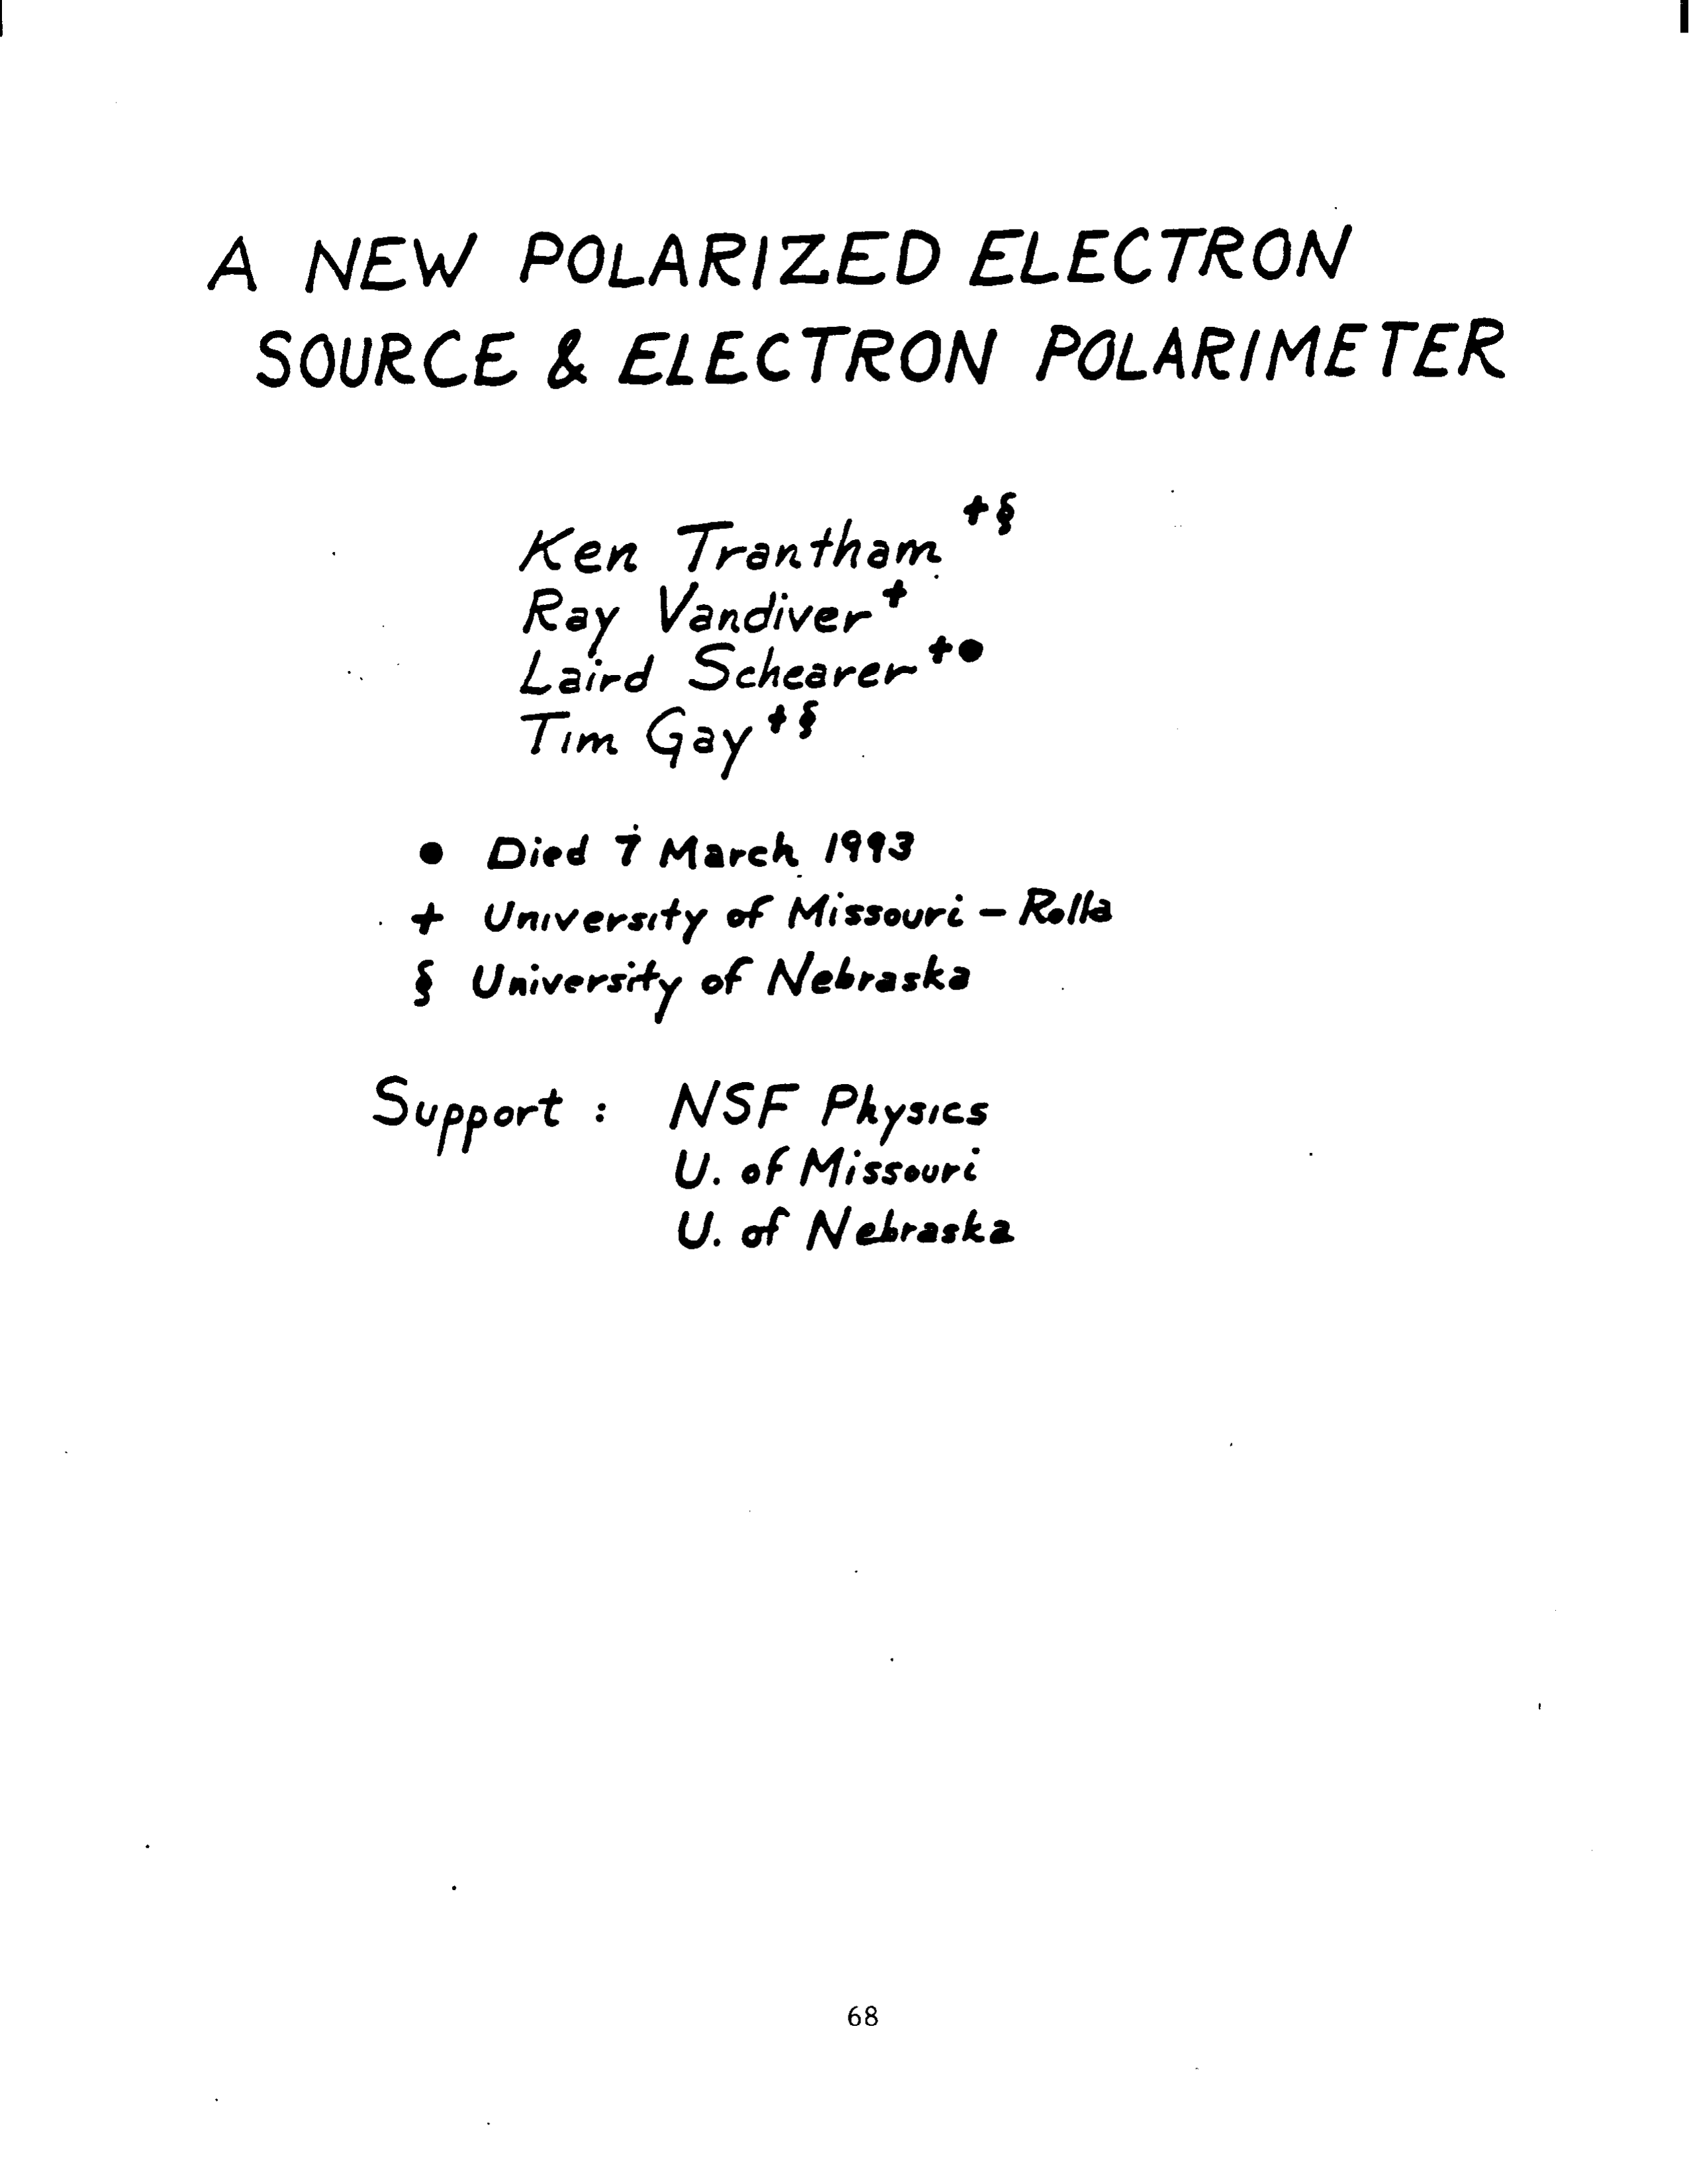 A NEW POLARIZED ELECTRON
SOURCE & ELECTRON POLARIMETER
Ken Trantham +§
Ray Vandiver +
Laird Schearer +●
Tim Gay +§
● Died 7 March 1993
+ University of Missouri – Rolla
§ University of Nebraska
Support : NSF Physics
U. of Missouri
U. of Nebraska
68